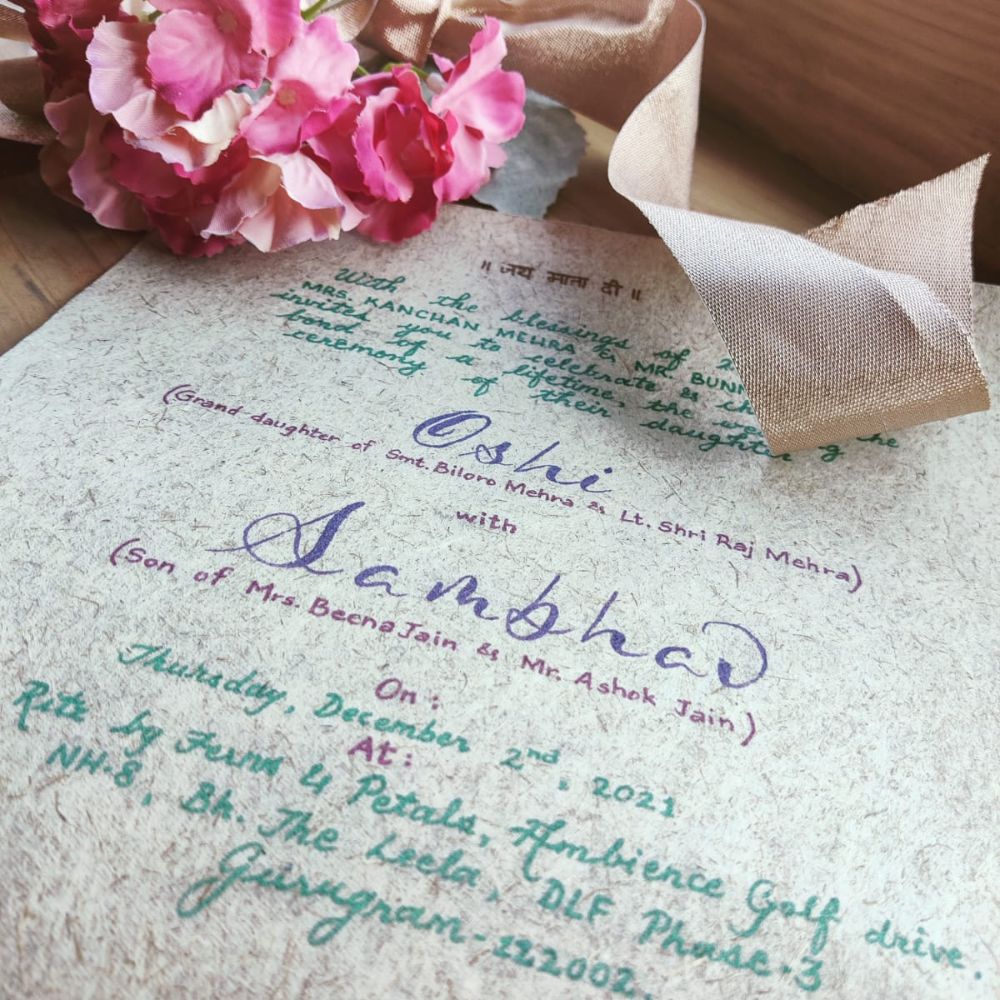 ॥ जय माता दी ॥
With the blessings of
MRS. KANCHAN MEHRA & MR. BUNN
invites you to celebrate &
bond of a lifetime, the the
ceremony of their daughter
Oshi
(Grand daughter of Smt. Biloro Mehra & Lt. Shri Raj Mehra)
with
Sambhav
(Son of Mrs. Beena Jain & Mr. Ashok Jain)
On :
Thursday, December 2nd, 2021
At :
Ritz by Ferns & Petals, Ambience Golf drive.
NH-8, Bh. The Leela, DLF Phase-3
Gurugram-122002.